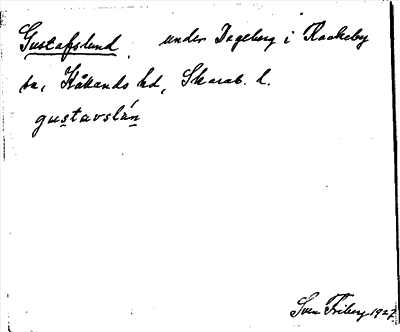 Gustafslund, under Dageberg i Rackeby
sn, Kållands hd, Skarab. l.
gustavslún
Sven Friberg 1927